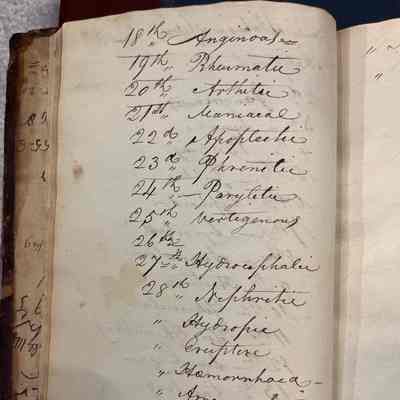 18th " Anginose
19th " Rheumatic
20th " Arthitic
21st " Maniacal
22d " Apoplectic
23d " Phrenitic
24th " Parylitic
25th " Vertigenous
26th "
27th " Hydrocephalic
28th " Nephritic
" Hydropic
" Eruptive
" Hæmorrhoea-
"